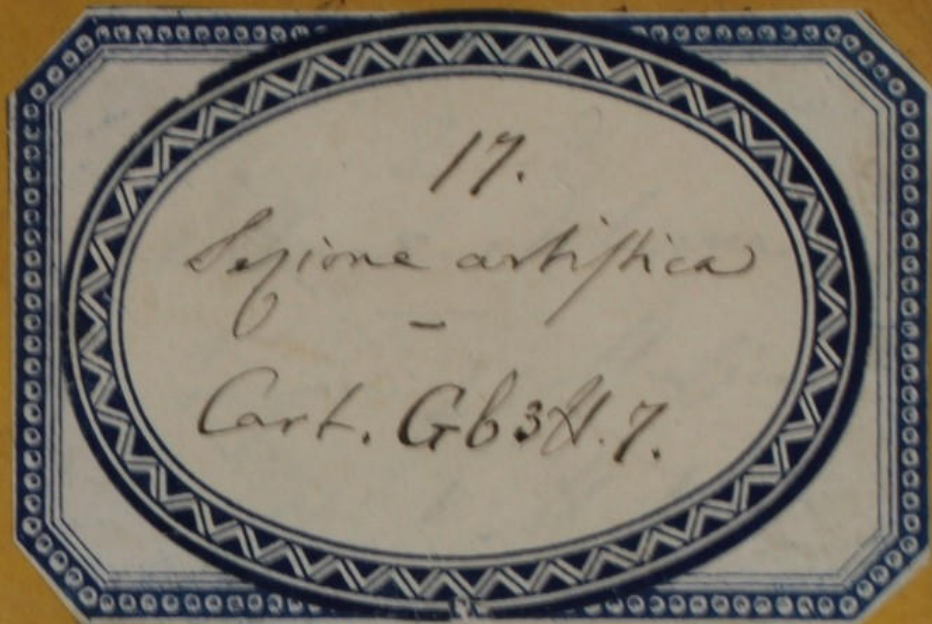 17.
Sezione artistica
—
Cart. Gb3